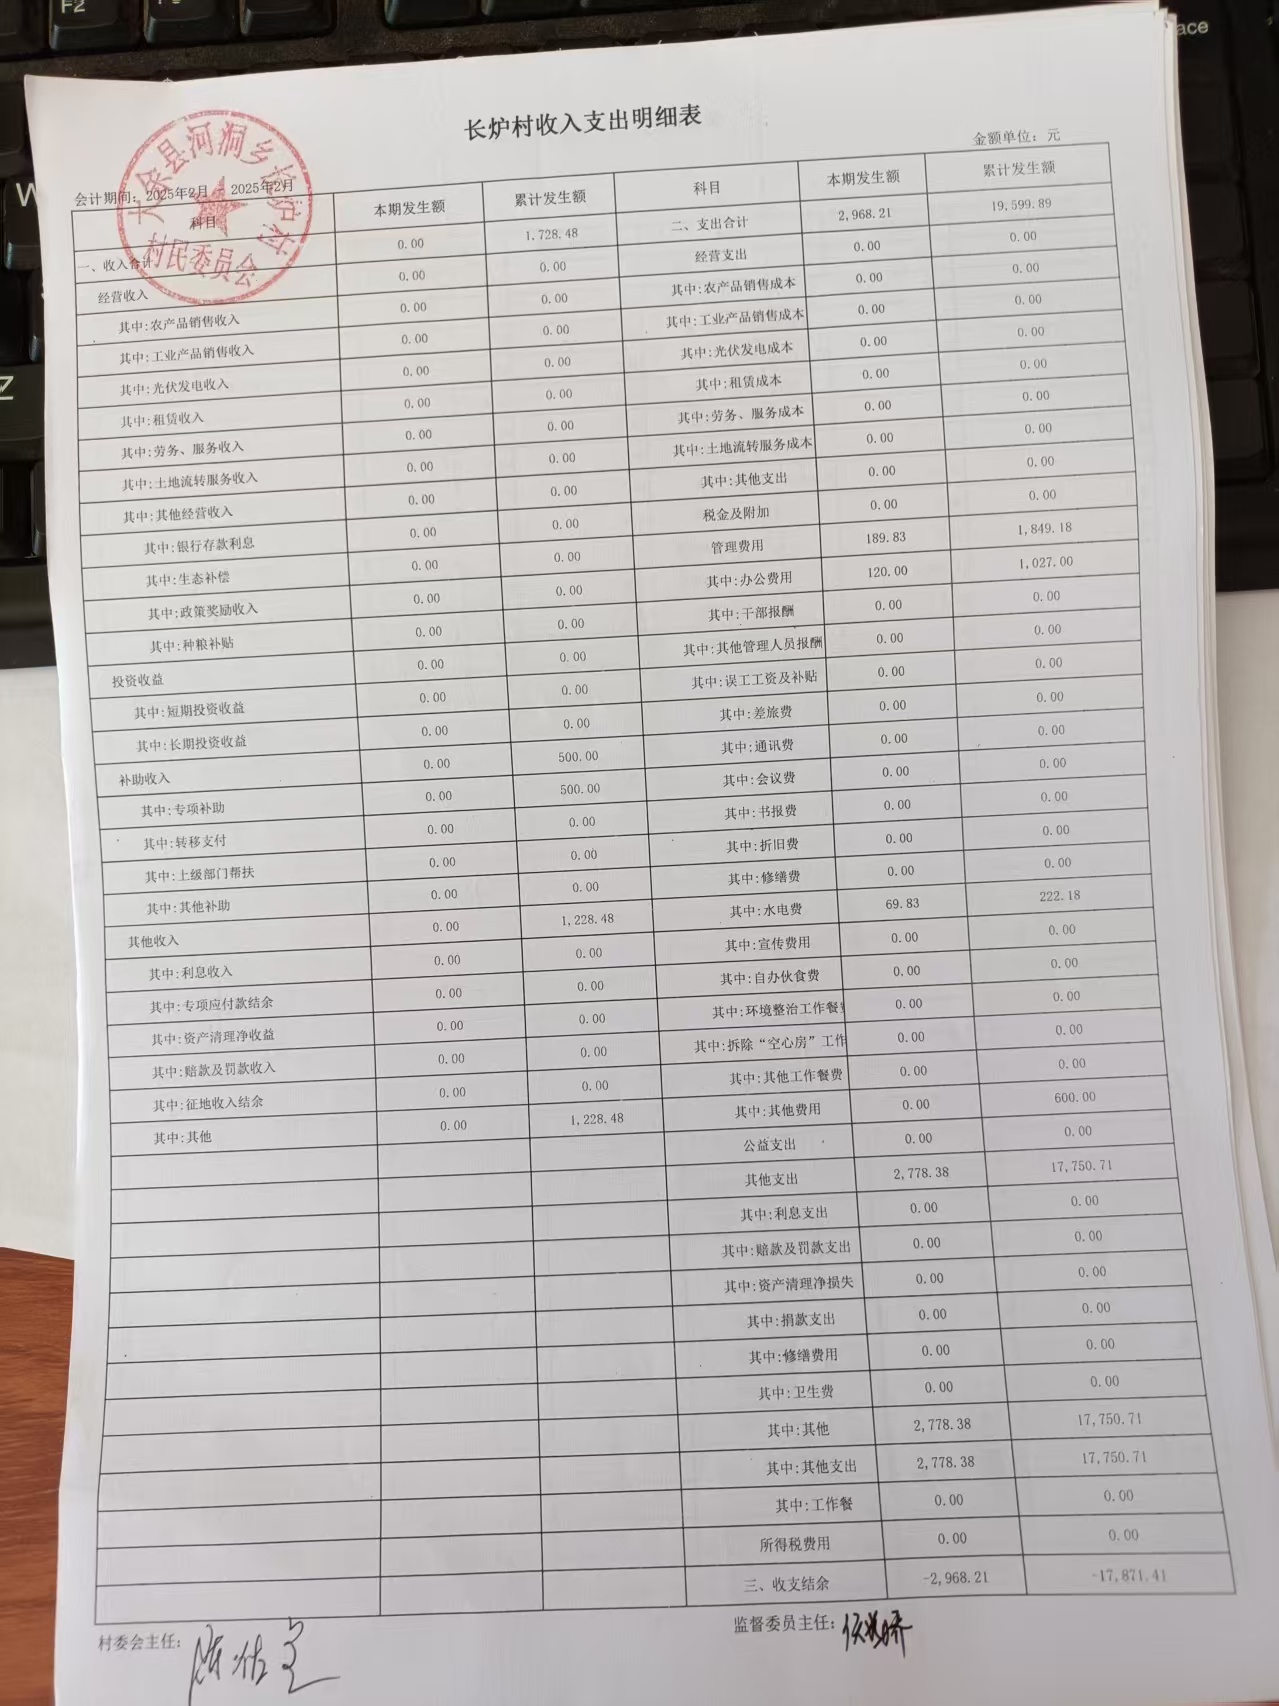 长炉村收入支出明细表
会计期间：2025年2月 - 2025年2月 金额单位：元
科目 本期发生额 累计发生额 科目 本期发生额 累计发生额
一、收入合计 0.00 1,728.48 二、支出合计 2,968.21 19,599.89
经营收入 0.00 0.00 经营支出 0.00 0.00
其中:农产品销售收入 0.00 0.00 其中:农产品销售成本 0.00 0.00
其中:工业产品销售收入 0.00 0.00 其中:工业产品销售成本 0.00 0.00
其中:光伏发电收入 0.00 0.00 其中:光伏发电成本 0.00 0.00
其中:租赁收入 0.00 0.00 其中:租赁成本 0.00 0.00
其中:劳务、服务收入 0.00 0.00 其中:劳务、服务成本 0.00 0.00
其中:土地流转服务收入 0.00 0.00 其中:土地流转服务成本 0.00 0.00
其中:其他经营收入 0.00 0.00 其中:其他支出 0.00 0.00
其中:银行存款利息 0.00 0.00 税金及附加 0.00 0.00
其中:生态补偿 0.00 0.00 管理费用 189.83 1,849.18
其中:政策奖励收入 0.00 0.00 其中:办公费用 120.00 1,027.00
其中:种粮补贴 0.00 0.00 其中:干部报酬 0.00 0.00
投资收益 0.00 0.00 其中:其他管理人员报酬 0.00 0.00
其中:短期投资收益 0.00 0.00 其中:误工工资及补贴 0.00 0.00
其中:长期投资收益 0.00 0.00 其中:差旅费 0.00 0.00
补助收入 0.00 500.00 其中:通讯费 0.00 0.00
其中:专项补助 0.00 500.00 其中:会议费 0.00 0.00
其中:转移支付 0.00 0.00 其中:书报费 0.00 0.00
其中:上级部门帮扶 0.00 0.00 其中:折旧费 0.00 0.00
其中:其他补助 0.00 0.00 其中:修缮费 0.00 0.00
其他收入 0.00 1,228.48 其中:水电费 69.83 222.18
其中:利息收入 0.00 0.00 其中:宣传费用 0.00 0.00
其中:专项应付款结余 0.00 0.00 其中:自办伙食费 0.00 0.00
其中:资产清理净收益 0.00 0.00 其中:环境整治工作餐 0.00 0.00
其中:赔款及罚款收入 0.00 0.00 其中:拆除“空心房”工作 0.00 0.00
其中:征地收入结余 0.00 0.00 其中:其他工作餐费 0.00 0.00
其中:其他 0.00 1,228.48 其中:其他费用 0.00 600.00
公益支出 0.00 0.00
其他支出 2,778.38 17,750.71
其中:利息支出 0.00 0.00
其中:赔款及罚款支出 0.00 0.00
其中:资产清理净损失 0.00 0.00
其中:捐款支出 0.00 0.00
其中:修缮费用 0.00 0.00
其中:卫生费 0.00 0.00
其中:其他 2,778.38 17,750.71
其中:其他支出 2,778.38 17,750.71
其中:工作餐 0.00 0.00
所得税费用 0.00 0.00
三、收支结余 -2,968.21 -17,871.41
村委会主任： 监督委员主任：
县河洞乡长炉村
村民委员会
F2
Z